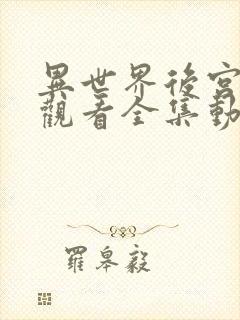 異世界後宮
觀看全集動
羅皋毅